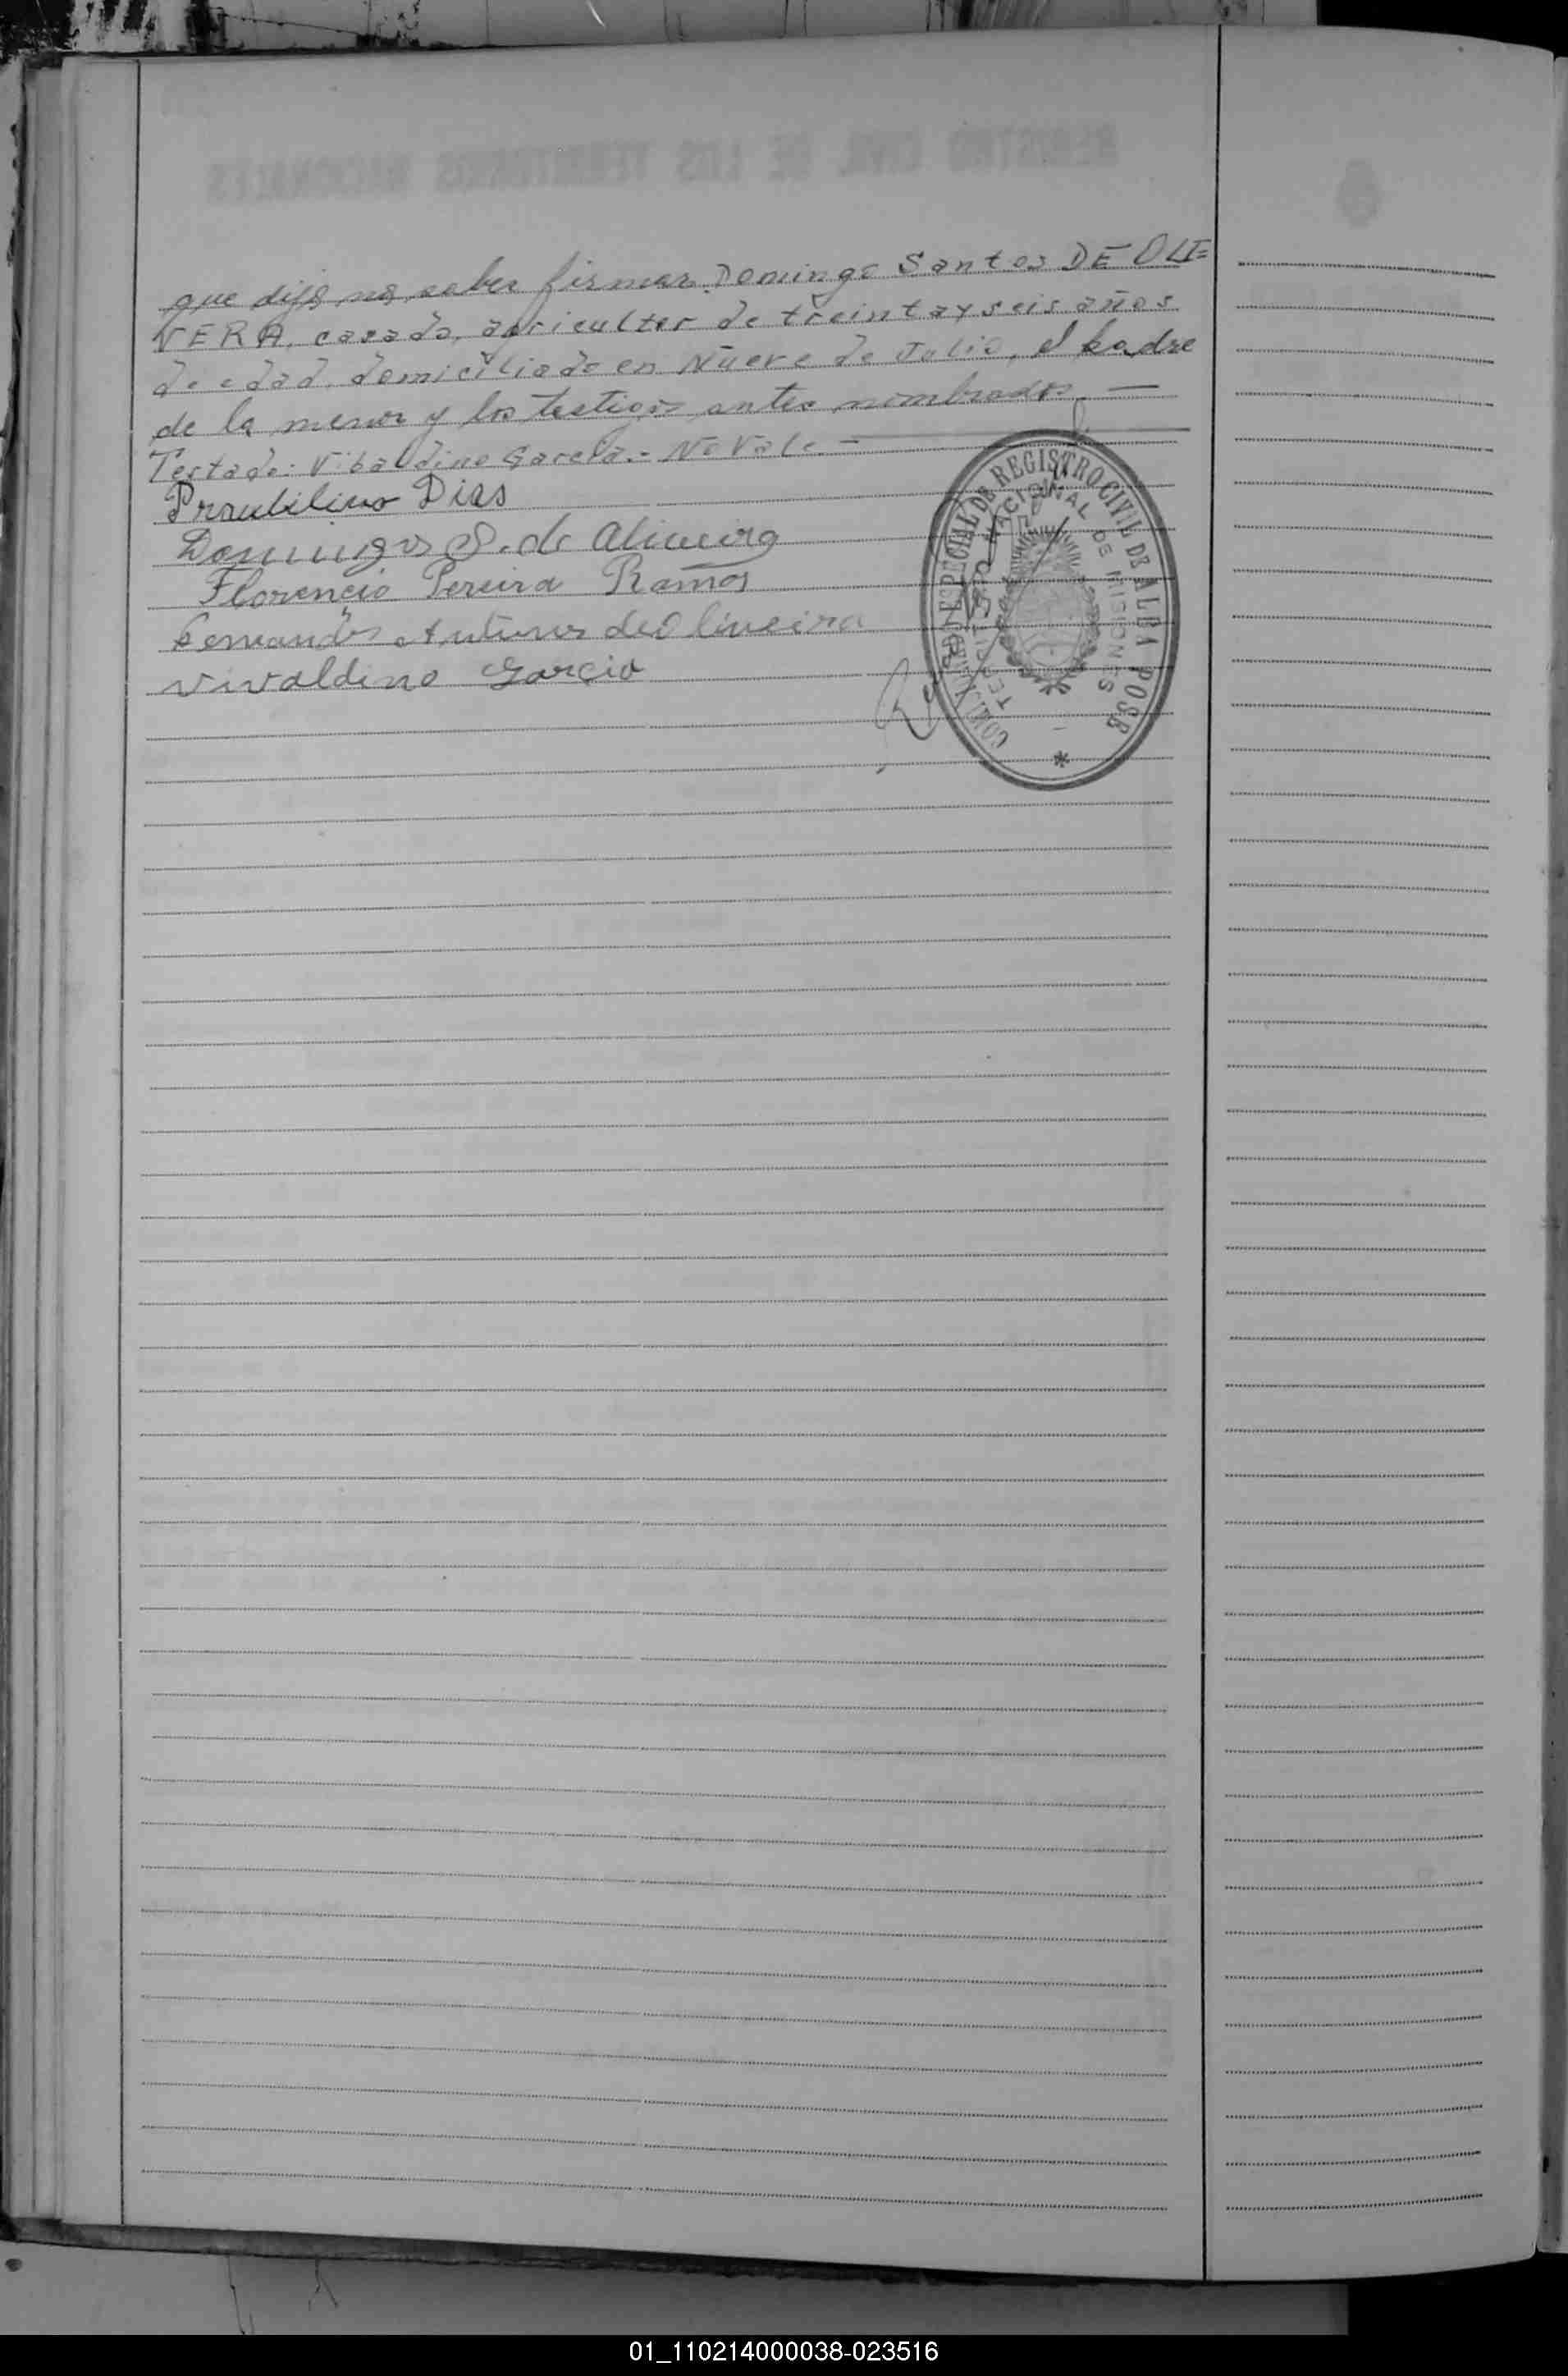 que dijo no saber firmar Domingo Santos DE OLI=
VERA, casado, agricultor de treinta y seis años
de edad, domiciliado en Nueve de Julio, el padre
de la menor y los testigos antes nombrados. —
Testado: Vibaldino Garcia.- No Vale. —
Dias
Domingos S. de Oliveira
Florencio Pereira Ramos
Antunes de Oliveira
Vivaldino Garcia
REGISTRO CIVIL DE LOS TERRITORIOS NACIONALES
ESPECIAL DE REGISTRO CIVIL DE ALBA POSE
TERRITORIO NACIONAL DE MISIONES
*
01_110214000038-023516